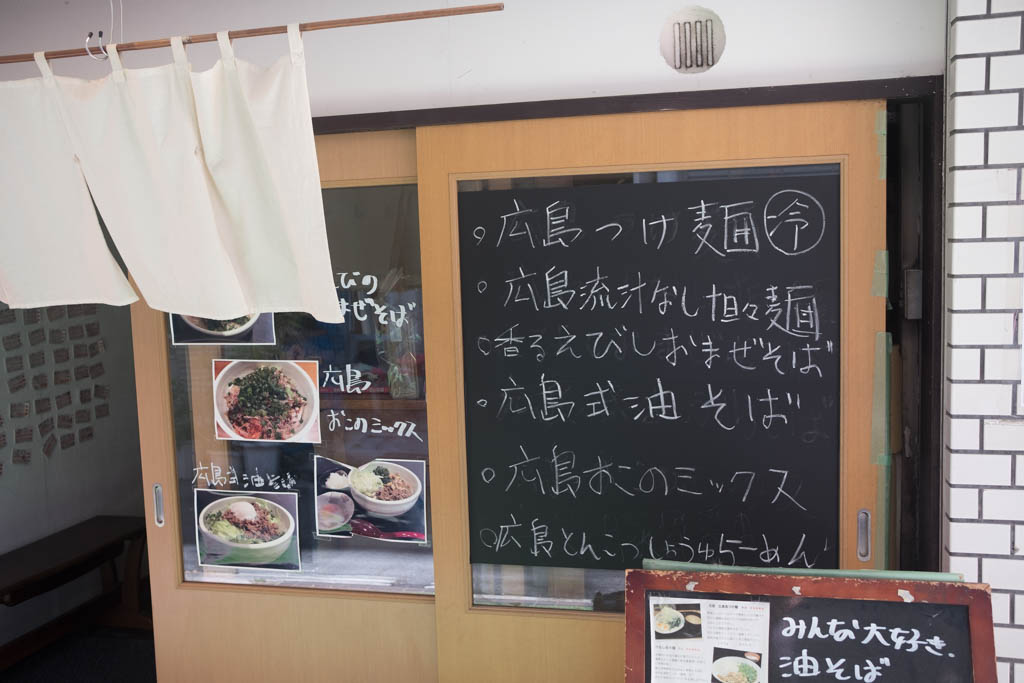 びの
まぜそば
広島
おこのミックス
広島式油そば
。広島つけ麺 冷
。広島流汁なし坦々麺
。香るえびしおまぜそば
。広島式油そば
。広島おこのミックス
。広島とんこつしょうゆらーめん
みんな大好き.
油そば